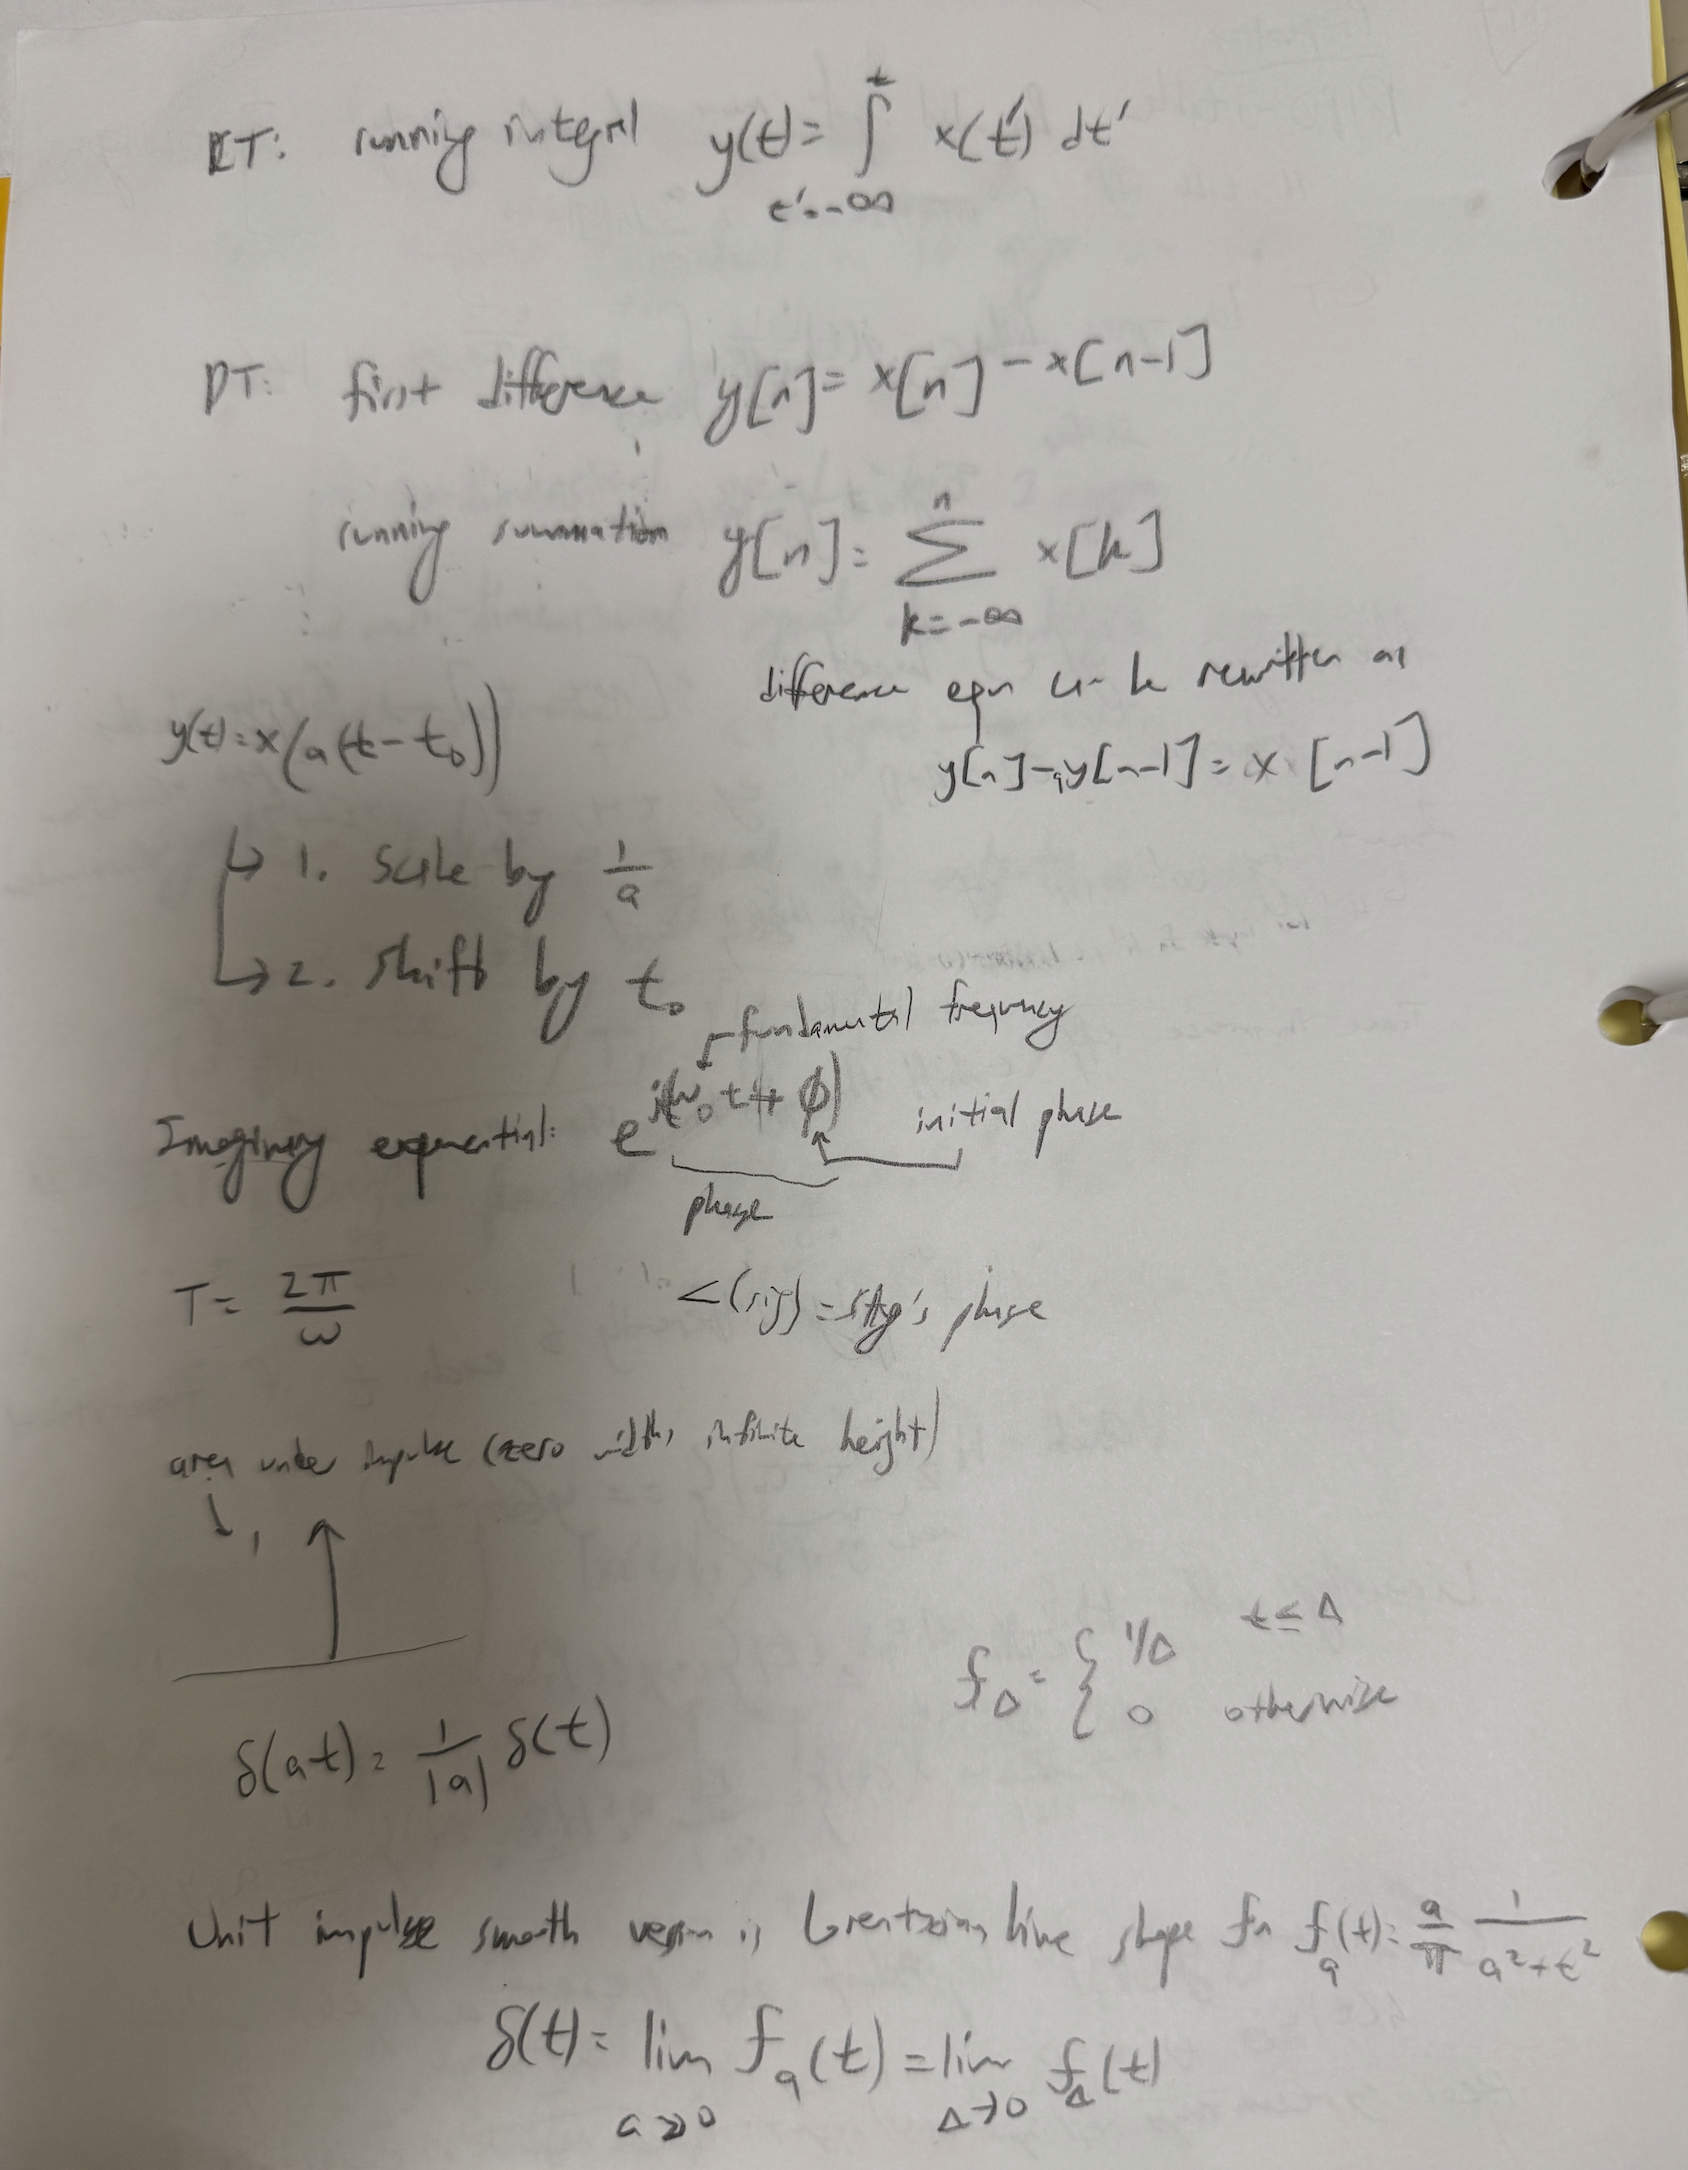 CT: running integral y(t) = ∫_{t'=-∞}^{t} x(t') dt'
DT: first difference y[n] = x[n] - x[n-1]
running summation y[n] = Σ_{k=-∞}^{n} x[k]
difference eqn can be rewritten as
y[n] - ay[n-1] = x[n-1]
y(t) = x(a(t - t₀))
↳ 1. Scale by 1/a
↳ 2. shift by t₀
fundamental frequency
Imaginary exponential: e^{i(ω₀t + φ)}
initial phase
phase
T = 2π/ω
<(sig) = sig's phase
area under impulse (zero width, infinite height)
1
f_Δ = { 1/Δ t ≤ Δ
0 otherwise
δ(at) = 1/|a| δ(t)
Unit impulse smooth version is Lorentzian line shape fn f_a(t) = a/π 1/(a² + t²)
δ(t) = lim_{a→0} f_a(t) = lim_{Δ→0} f_Δ(t)